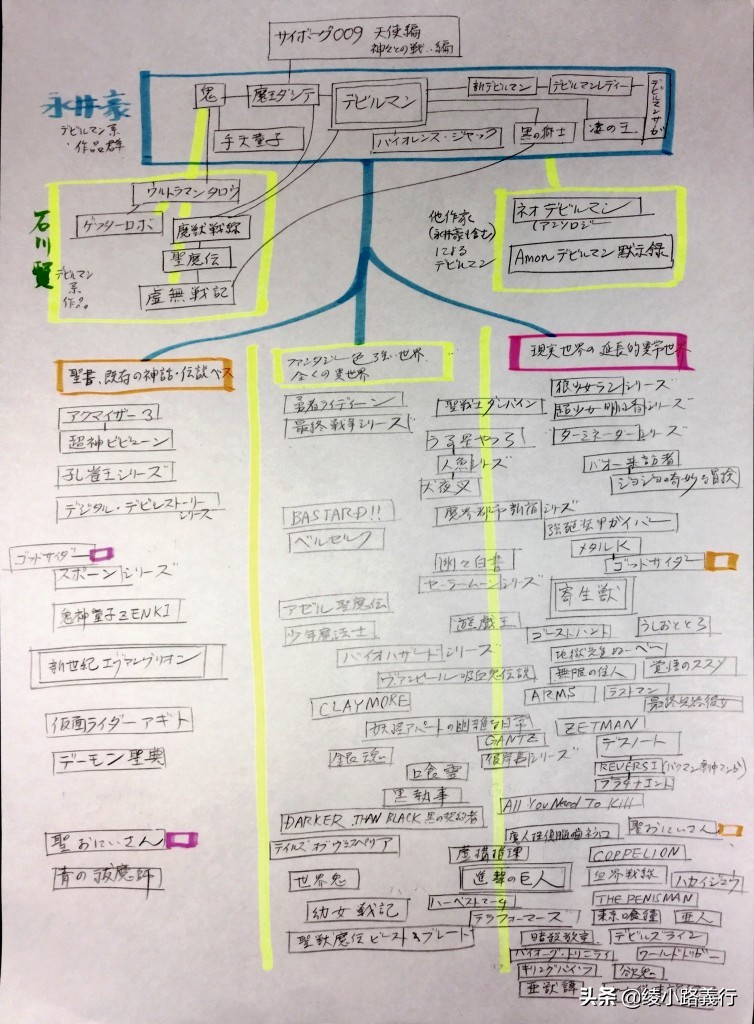 サイボーグ009 天使編
神々との戦い編
永井豪
デビルマン系
作品群
鬼
魔王ダンテ
デビルマン
新デビルマン
デビルマンレディー
デビルマンサガ
手天童子
バイオレンス・ジャック
黒の獅士
凄の王
石川賢
デビルマン
系
作品
ウルトラマンタロウ
ゲッターロボ
魔獣戦線
聖魔伝
虚無戦記
他作家
(永井豪も含む)
による
デビルマン
ネオデビルマン
(アンソロジー
Amonデビルマン黙示録
聖書、既存の神話・伝説ベース
ファンタジー色強い世界、
全くの異世界
現実世界の延長的異常世界
アクマイザー3
超神ビビューン
孔雀王シリーズ
デジタル・デビルストーリー
シリーズ
ゴッドサイダー
スポーンシリーズ
鬼神童子ZENKI
新世紀エヴァンゲリオン
仮面ライダーアギト
デーモン聖典
聖おにいさん
青の祓魔師
勇者ライディーン
最終戦争シリーズ
聖戦士ダンバイン
うる星やつら
人魚シリーズ
犬夜叉
BASTARD!!
魔界都市新宿シリーズ
ベルセルク
幽々白書
セーラームーンシリーズ
アゼル聖魔伝
少年魔法士
遊戯王
バイオハザードシリーズ
ヴァンピール吸血鬼伝説
CLAYMORE
妖怪アパートの幽雅な日常
GANTZ
銀魂
彼岸島シリーズ
口食霊
黒執事
DARKER THAN BLACK 黒の契約者
テイルズオブヴェスペリア
虚構推理
世界鬼
進撃の巨人
幼女戦記
ハーベストマーチ
テラフォーマーズ
聖獣魔伝ビースト&ブレード
狼少女ランシリーズ
超少女明日香シリーズ
ターミネーターシリーズ
バオー来訪者
ジョジョの奇妙な冒険
強殖装甲ガイバー
メタルK
ゴッドサイダー
寄生獣
ゴーストハント
うしおととら
地獄先生ぬ〜べ〜
無限の住人
覚悟のススメ
ARMS
ラストマン
最終兵器彼女
ZETMAN
デスノート
REVERSI
プラチナエンド
All You Need To Kill
魔人探偵脳噛ネウロ
聖おにいさん
COPPELION
血界戦線
ハカイジュウ
THE PENISMAN
東京喰種
亜人
暗殺教室
デビルズライン
バイオーグ・トリニティ
ワールドトリガー
キリングバイツ
欲鬼
亜獣譚
头条 @绫小路義行